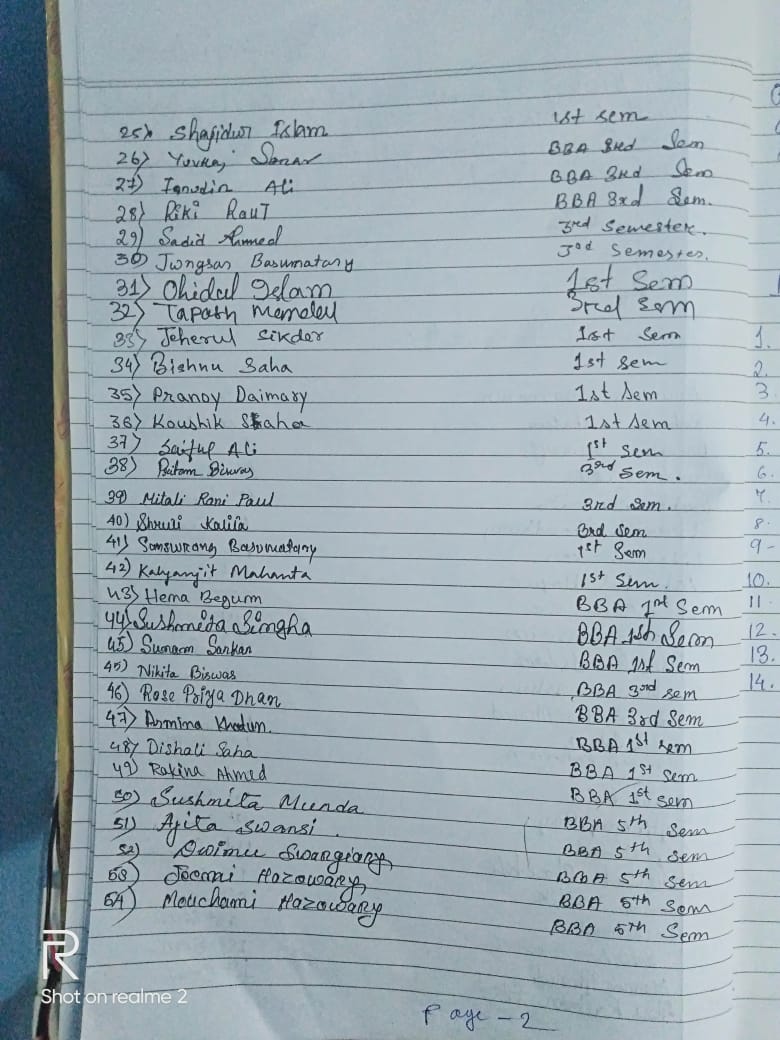 25) Shajidur Islam 1st sem
26) Yuvraj Sonar BBA 3rd Sem
27) Ali BBA 3rd Sem
28) Riki Raut BBA 3rd Sem.
29) Sadid Ahmed 3rd Semester.
30) Jwngsar Basumatary 3rd Semester.
31) Ohidul Islam 1st Sem
32) Tapash 3rd Sem
33) Jeherul Sikder 1st Sem
34) Bishnu Saha 1st sem
35) Pranoy Daimary 1st Sem
36) Koushik Saha 1st Sem
37) Saiful Ali 1st Sem
38) Pritam Biswas 3rd Sem.
39) Mitali Rani Paul 3rd Sem.
40) Kalita 3rd Sem
41) Somswrang Basumatary 1st Sem
42) Kalyanjit Mahanta 1st Sem.
43) Hema Begum BBA 1st Sem
44) Sushmeta Singha BBA 1st Sem
45) Sunam Sarkar BBA 1st Sem
45) Nikita Biswas BBA 3rd sem
46) Rose Priya Dhan BBA 3rd Sem
47) Armina Khatun. BBA 1st Sem
48) Dishali Saha BBA 1st Sem
49) Rakina Ahmed BBA 1st Sem
50) Sushmita Munda BBA 5th Sem
51) Ajita Swansi. BBA 5th Sem
52) Dwimu Swargiary BBA 5th Sem
53) Joemai Hazowary BBA 5th Sem
54) Mouchami Hazowary BBA 5th Sem
1.
2.
3
4.
5.
6.
7.
8.
9-
10.
11.
12.
13.
14.
Page - 2
R
Shot on realme 2